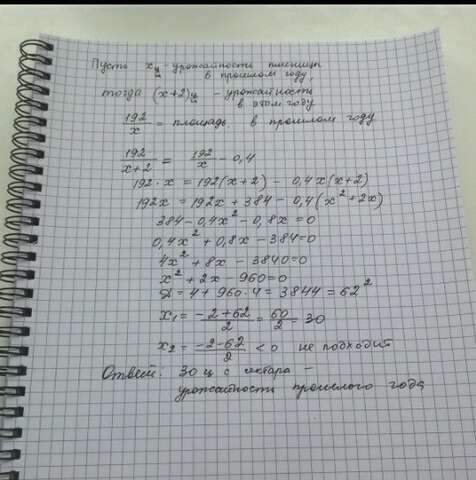 Пусть x ц - урожайность пшеницы
в прошлом году,
тогда (x+2) ц - урожайность
в этом году
192/x = площадь в прошлом году
192/(x+2) = 192/x - 0,4
192·x = 192(x+2) - 0,4x(x+2)
192x = 192x + 384 - 0,4(x²+2x)
384 - 0,4x² - 0,8x = 0
0,4x² + 0,8x - 384 = 0
4x² + 8x - 3840 = 0
x² + 2x - 960 = 0
Д = 4 + 960·4 = 3844 = 62²
x₁ = (-2+62)/2 = 60/2 = 30
x₂ = (-2-62)/2 < 0 не подходит
Ответ: 30 ц с гектара -
урожайность прошлого года